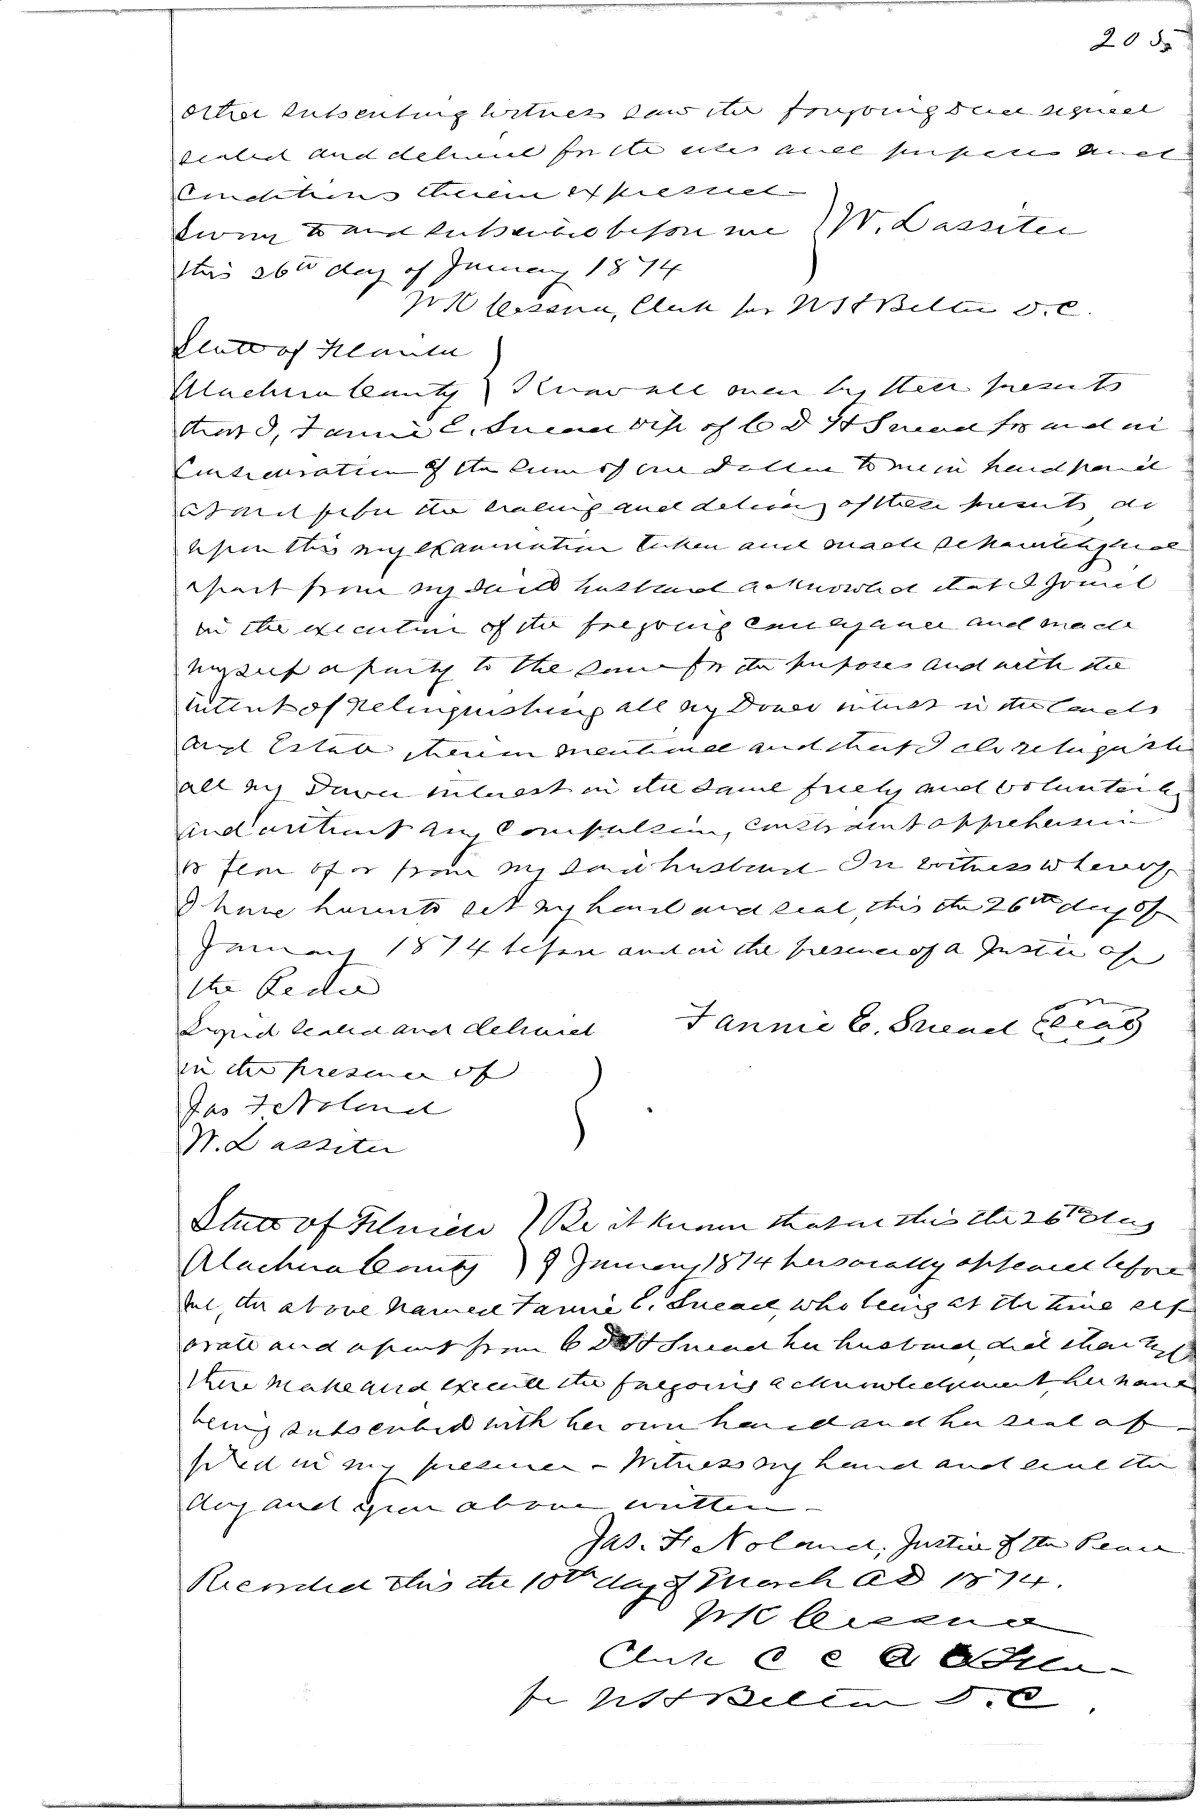 205
other subscribing witness saw the foregoing Deed signed
sealed and delivered for the uses and purposes and
Conditions therein expressed
Sworn to and subscribed before me } W. Lassiter
this 26th day of January 1874
J W K Cessna, Clerk for N H Belton D.C.
State of Florida
Alachua County } Know all men by these presents
that I, Fannie E. Snead wife of C D H Snead for and in
Consideration of the sum of one Dollar to me in hand paid
at and before the sealing and delivery of these presents, do
upon this my examination taken and made separately and
apart from my said husband acknowled that I joined
in the execution of the foregoing conveyance and made
myself a party to the same for the purposes and with the
intent of relinquishing all my Dower interest in the lands
and Estate therein mentioned and that I do relinquish
all my Dower interest in the same freely and voluntarily
and without any compulsion, constraint apprehension
or fear of or from my said husband In witness whereof
I have hereunto set my hand and seal, this the 26th day of
January 1874 before and in the presence of a Justice of
the Peace
Signed sealed and delivered Fannie E. Snead (Seal)
in the presence of
Jas F. Noland
W. Lassiter
State of Florida } Be it known that on this the 26th day
Alachua County } of January 1874 personally appeared before
me, the above named Fannie E. Snead, who being at the time sep
arate and apart from C D H Snead her husband, did then and
there make and execute the foregoing acknowledgment, her name
being subscribed with her own hand and her seal af-
fixed in my presence - Witness my hand and seal the
day and year above written -
Jas. F. Noland, Justice of the Peace
Recorded this the 10th day of March AD 1874.
J W K Cessna
Clerk C C A Co Fla -
for N H Belton D. C.